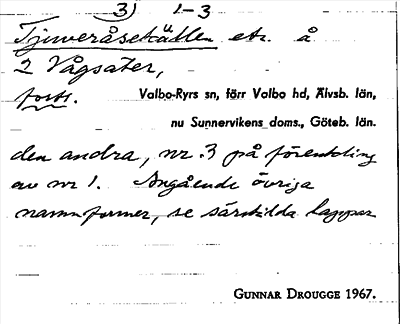 3) 1-3
Tjuveråsekullen etc. å
2 Vågsäter,
forts. Valbo-Ryrs sn, förr Valbo hd, Älvsb. län,
nu Sunnervikens doms., Göteb. län.
den andra, nr. 3 på förenkling
av nr 1. Angående övriga
namnformer, se särskilda lappar
GUNNAR DROUGGE 1967.